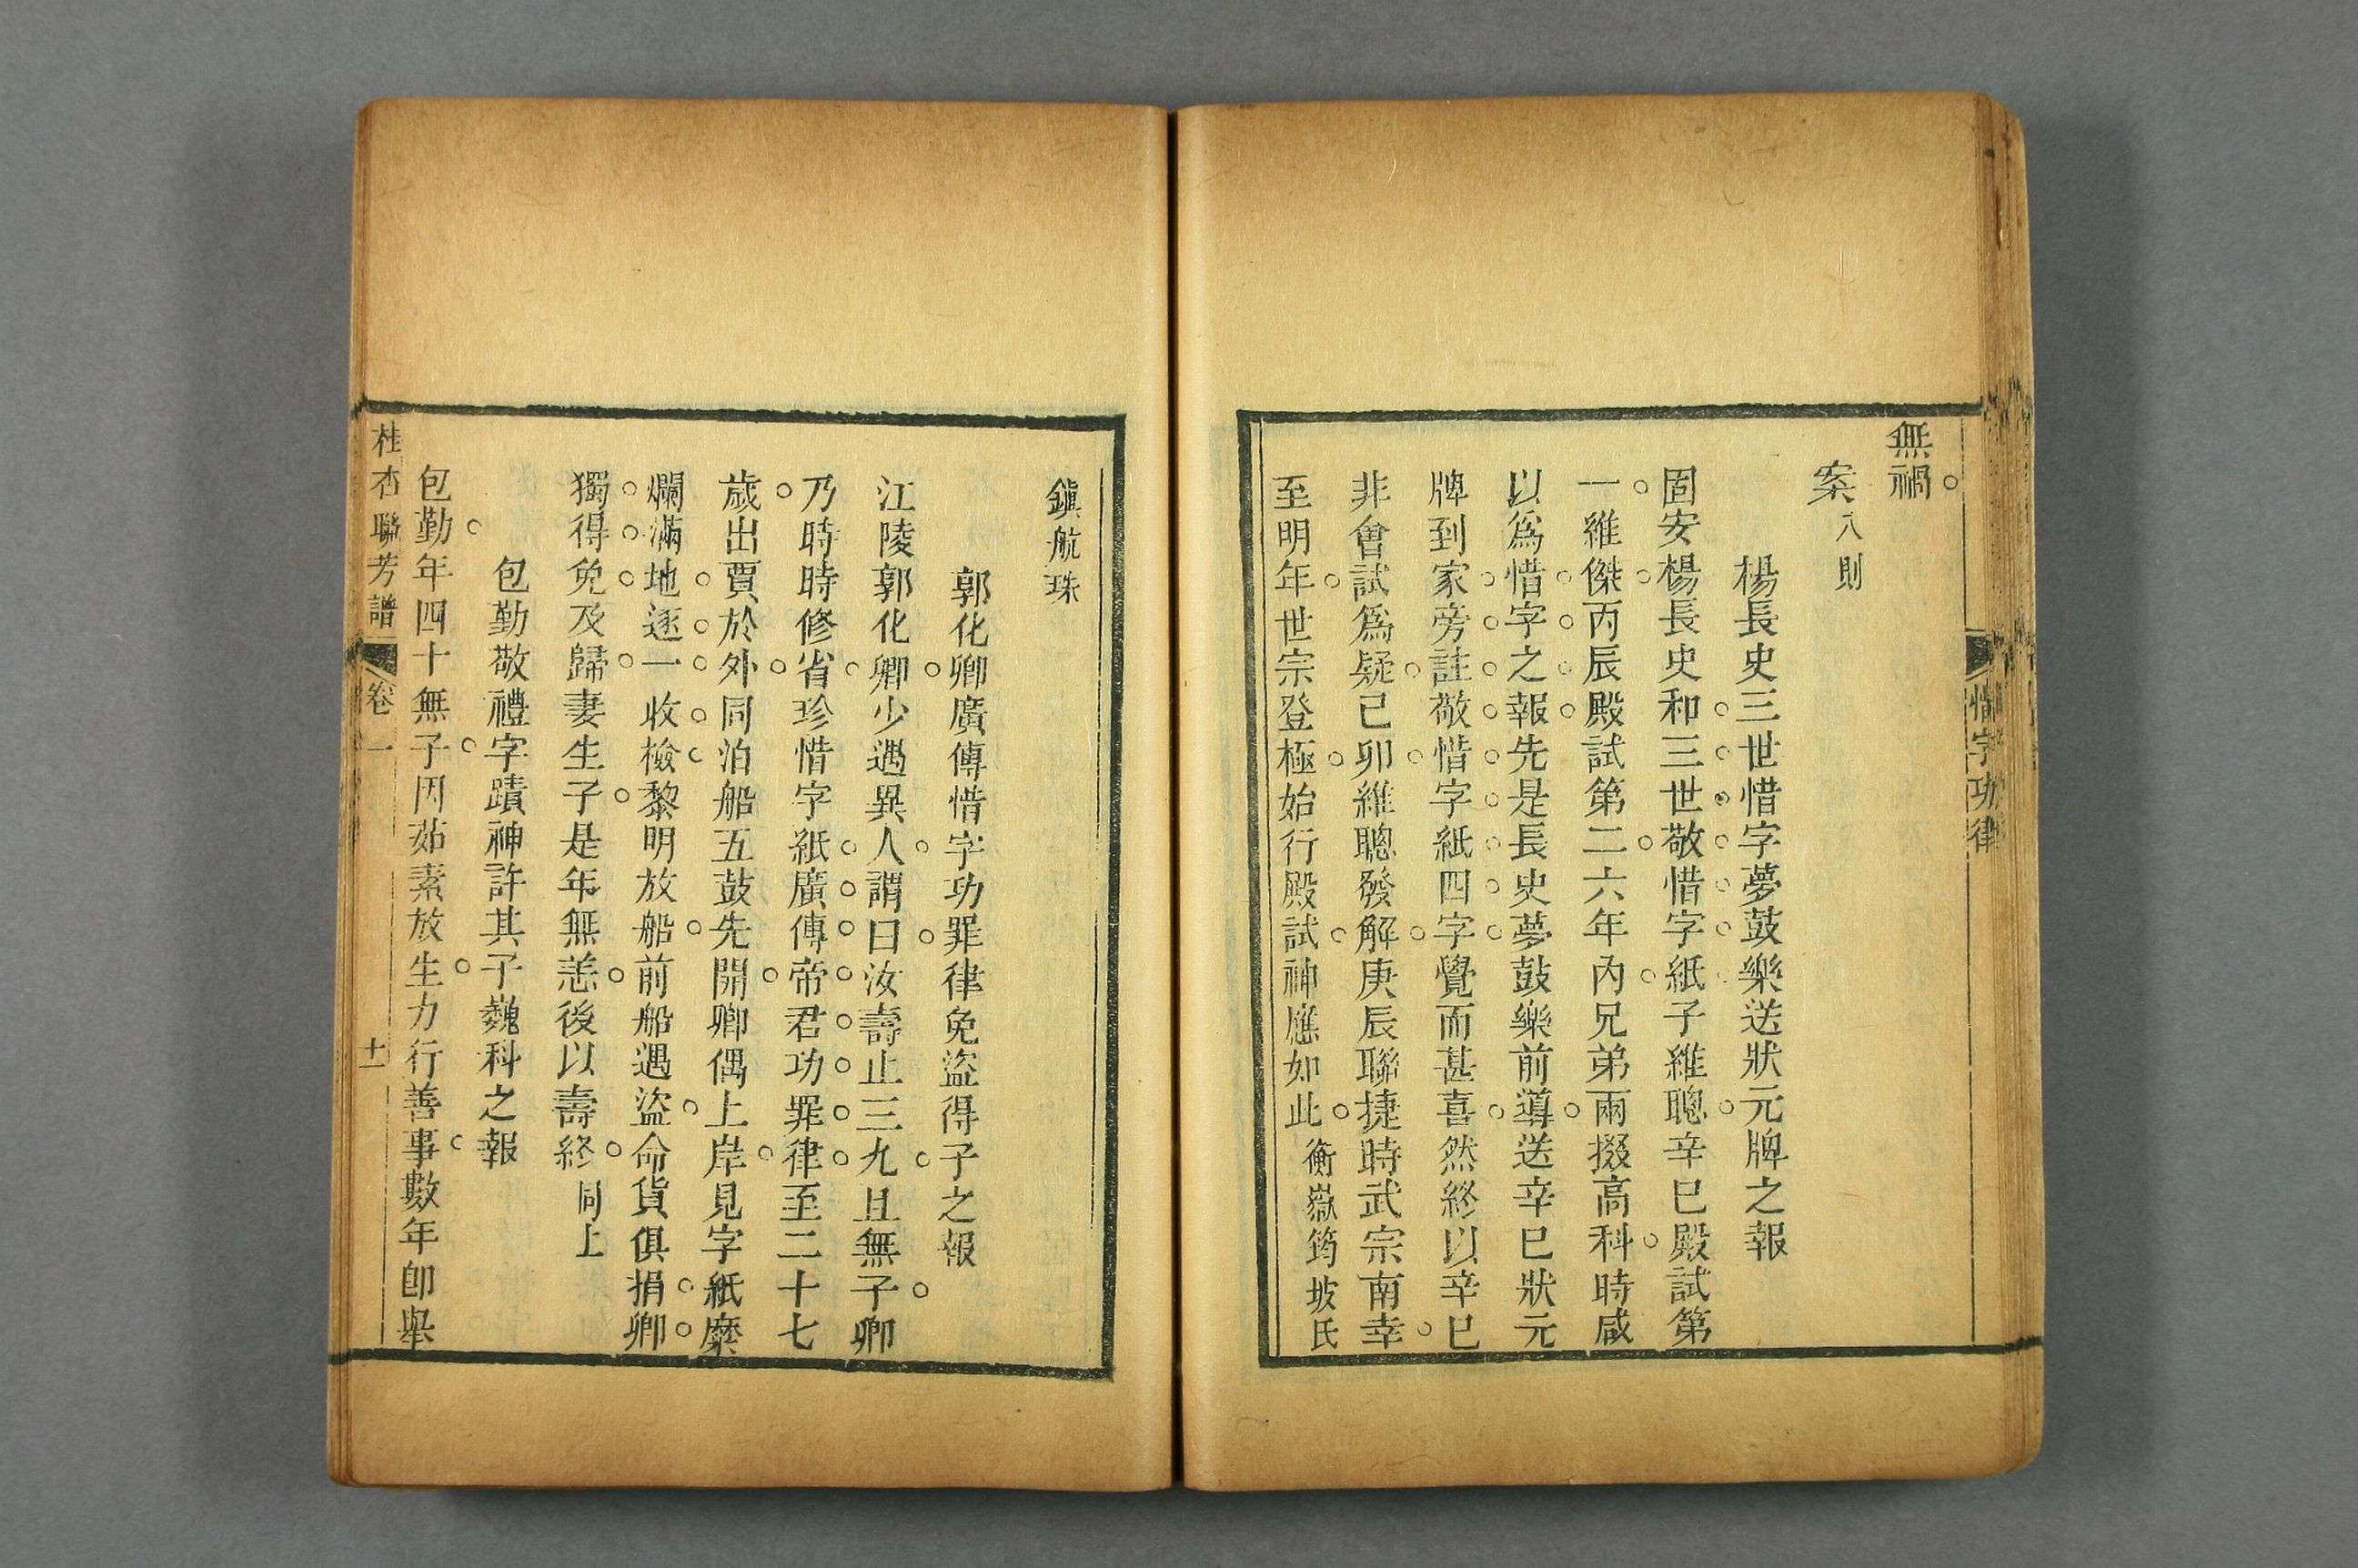 惜字功律
無禍。
案八則
楊長史三世惜字夢鼓樂送狀元牌之報
固安楊長史和三世敬惜字紙子維聰。辛巳殿試第
一。維傑。丙辰殿試第二。六年內。兄弟兩掇高科。時咸
以爲惜字之報。先是長史夢鼓樂前導。送辛巳狀元
牌到家。旁註敬惜字紙四字。覺而甚喜。然終以辛巳。
非會試爲疑。己卯。維聰發解。庚辰聯捷時武宗南幸
至明年。世宗登極。始行殿試。神應如此。衡嶽筠坡氏
鎭航珠
郭化卿廣傳惜字功罪律免盜得子之報
江陵郭化卿。少遇異人。謂曰。汝壽止三九。且無子。卿
乃時時修省。珍惜字紙。廣傳帝君功罪律。至二十七
歲。出賈於外。同泊船五鼓先開。卿偶上岸。見字紙縻
爛滿地。逐一收檢。黎明放船。前船遇盜。命貨俱捐。卿。
獨得免。及歸。妻生子。是年無恙。後以壽終。同上
包勤敬禮字蹟神許其子巍科之報
包勤。年四十無子。因茹素放生。力行善事。數年卽舉
桂杏聯芳譜
卷一
十一